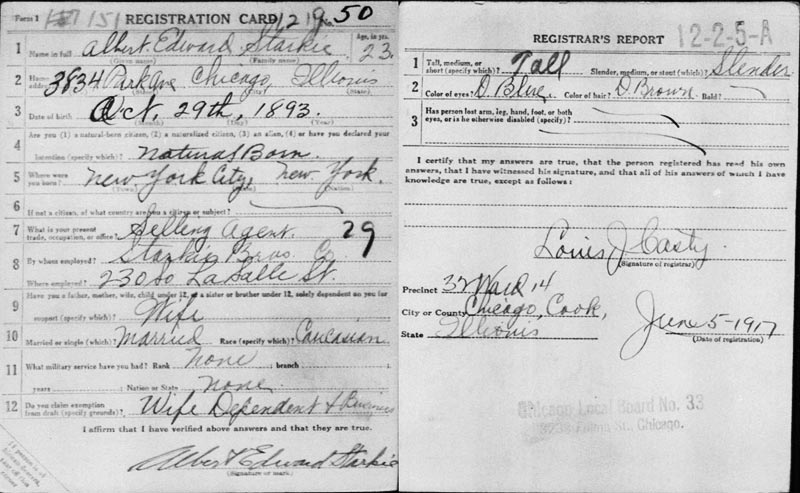 Form 1 151 REGISTRATION CARD No. 50
1 Name in full Albert Edward Starkie Age, in yrs. 23
(Given name) (Family name)
2 Home address 3834 Park Ave Chicago, Illionis
(State)
3 Date of birth Oct. 29th, 1893
(Month) (Day) (Year)
4 Are you (1) a natural-born citizen, (2) a naturalized citizen, (3) an alien, (4) or have you declared your
intention (specify which)? Natural Born
5 Where were you born? New York City, New York.
(Town) (Nation)
6 If not a citizen, of what country are you a citizen or subject?
7 What is your present trade, occupation, or office? Selling Agent. 29
8 By whom employed? Starkie Bros. Co.
Where employed? 230 So LaSalle St.
9 Have you a father, mother, wife, child under 12, or a sister or brother under 12, solely dependent on you for
support (specify which)? Wife
10 Married or single (which)? Married Race (specify which)? Caucasian
11 What military service have you had? Rank None branch
years ; Nation or State None
12 Do you claim exemption from draft (specify grounds)? Wife Dependent & Business
I affirm that I have verified above answers and that they are true.
Albert Edward Starkie
(Signature or mark)
REGISTRAR'S REPORT 12-2-5-A
1 Tall, medium, or short (specify which)? Tall Slender, medium, or stout (which)? Slender
2 Color of eyes? D Blue Color of hair? D Brown Bald?
3 Has person lost arm, leg, hand, foot, or both
eyes, or is he otherwise disabled (specify)?
I certify that my answers are true, that the person registered has read his own
answers, that I have witnessed his signature, and that all of his answers of which I have
knowledge are true, except as follows:
Louis J Casty
(Signature of registrar)
Precinct 32 Ward 14
City or County Chicago, Cook,
State Illionis
June 5-1917
(Date of registration)
Chicago Local Board No. 33
St., Chicago.